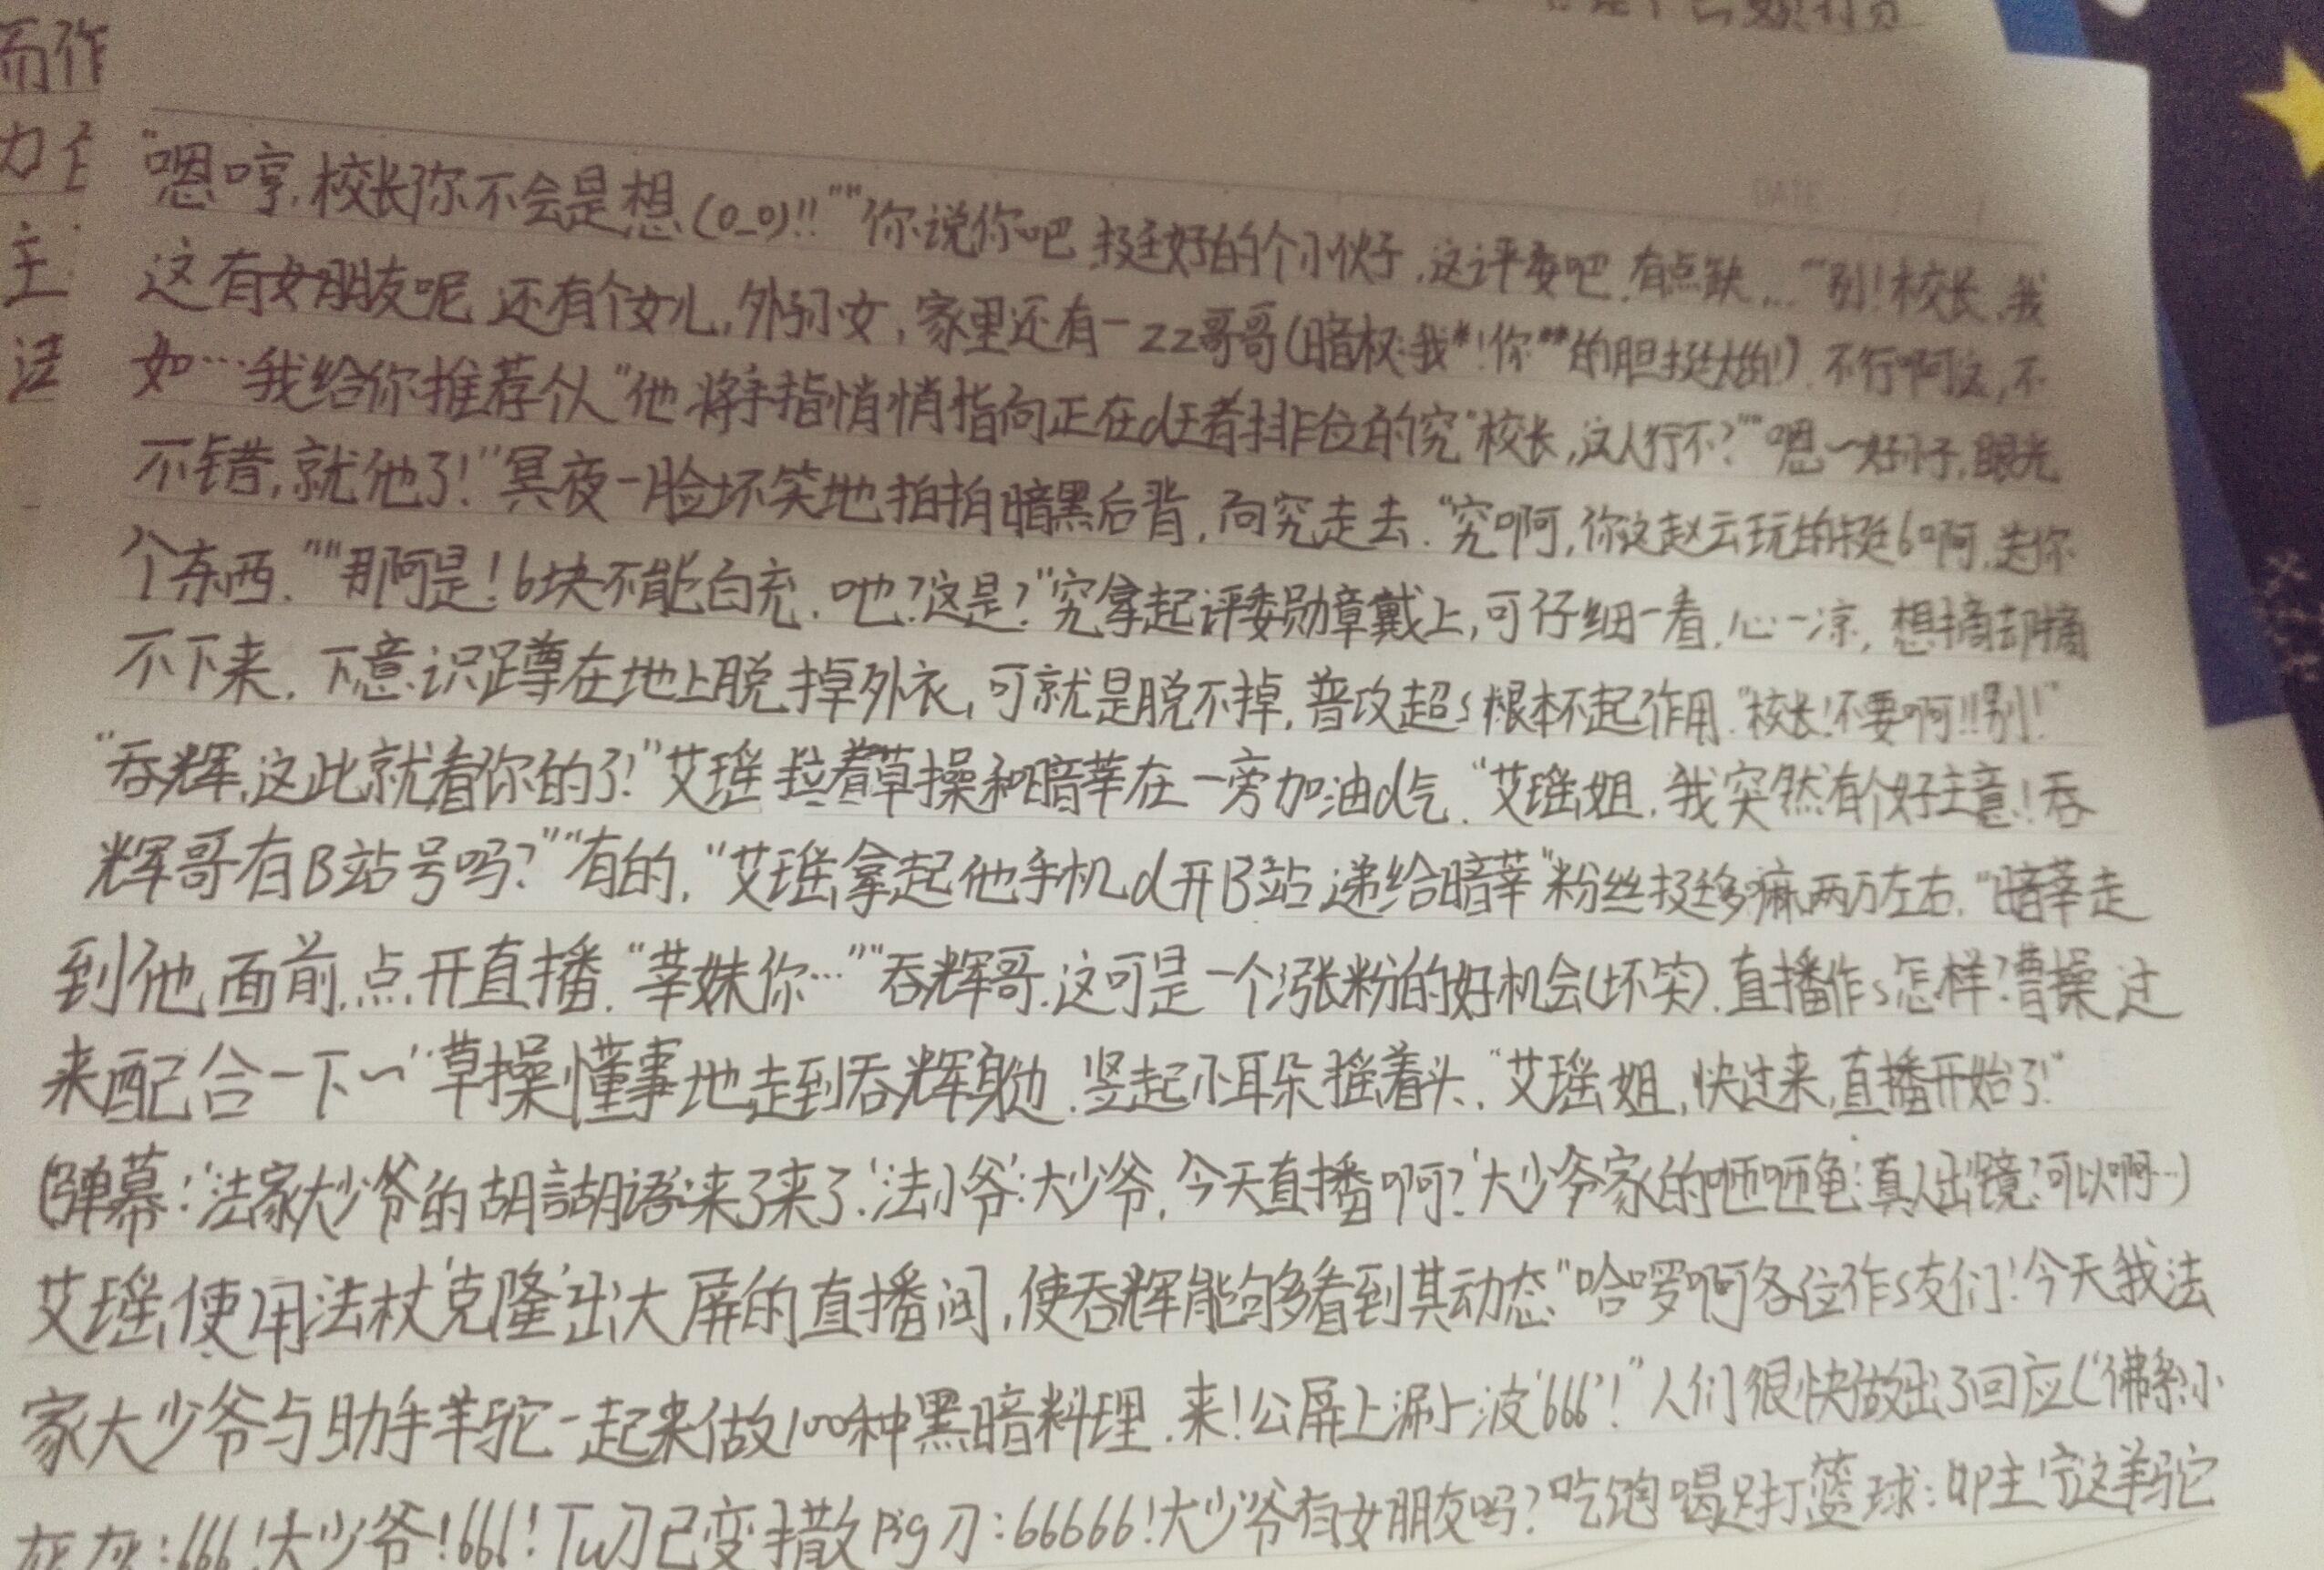 而作
力
主
法
"嗯哼,校长你不会是想(0_0)!!""你说你吧,挺好的个小伙子,这评委吧,有点缺...""别!校长,我
这有女朋友呢,还有个女儿,外孙女,家里还有一zz哥哥(暗权:我*!你**的胆挺大的!).不行啊这,不
如…我给你推荐个人"他将手指悄悄指向正在d王者排位的究"校长,这人行不?""嗯~好小子,眼光
不错,就他了!"冥夜一脸坏笑地拍拍暗黑后背,向究走去."究啊,你这赵云玩的挺6啊,送你
个东西.""那可是!6块不能白充.吔?这是?"究拿起评委勋章戴上,可仔细一看,心一凉,想摘却摘
不下来.下意识蹲在地上脱掉外衣,可就是脱不掉,普攻超s根本不起作用."校长!不要啊!!别!"
"吞辉,这此就看你的了!"艾瑶拉着草操和暗莘在一旁加油d气."艾瑶姐,我突然有个好主意!吞
辉哥有B站号吗?""有的,"艾瑶拿起他手机d开B站递给暗莘"粉丝挺多嘛,两万左右."暗莘走
到他面前,点开直播."莘妹你…""吞辉哥.这可是一个涨粉的好机会(坏笑).直播作s怎样?曹操过
来配合一下~"草操懂事地走到吞辉身边.竖起小耳朵摇着头."艾瑶姐,快过来,直播开始了!"
(弹幕:'法家大少爷的胡言胡语:来了来了.'法小爷':大少爷,今天直播啊?'大少爷家的咂咂龟:真人出镜?可以啊…)
艾瑶使用法杖'克隆'出大屏的直播间,使吞辉能够多看到其动态."哈啰啊各位作s友们!今天我法
家大少爷与助手羊驼一起来做100种黑暗料理.来!公屏上涮上波'666'!"人们很快做出了回应('佛系小
灰灰:666!大少爷!666!Tw刀已变撒pig刀:66666!大少爷有女朋友吗?吃饱喝足打篮球:卯主!它这羊驼